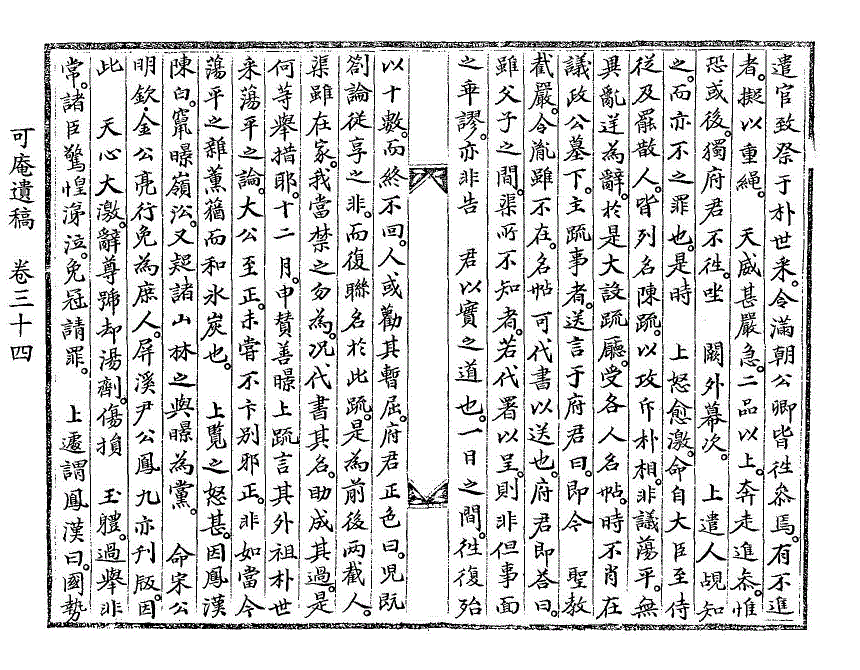 遣官致祭于朴世采。令滿朝公卿皆徃叅焉。有不進
者。擬以重繩。 天威甚嚴急。二品以上。奔走進叅。惟
恐或後。獨府君不徃。坐 闕外幕次。 上遣人覘知
之。而亦不之罪也。是時 上怒愈激。命自大臣至侍
從及罷散人。皆列名陳疏。以攻斥朴相。非議蕩平。無
異亂逆為辭。於是大設疏廳。受各人名帖。時不肖在
議政公墓下。主疏事者。送言于府君曰。卽令 聖敎
截嚴。令胤雖不在。名帖可代書以送也。府君卽答曰。
雖父子之間。渠所不知者。若代署以呈。則非但事面
之乖謬。亦非告 君以實之道也。一日之間。徃復殆
以十數。而終不回。人或勸其暫屈。府君正色曰。兒旣
箚論從享之非。而復聯名於此疏。是為前後兩截人。
渠雖在家。我當禁之勿為。况代書其名。助成其過。是
何等擧措耶。十二月。申賛善暻上疏。言其外祖朴世
采蕩平之論。大公至正。未甞不卞別邪正。非如當今
蕩平之雜薰蕕而和氷炭也。 上覽之怒甚。因鳳漢
陳白。竄暻嶺沿。又疑諸山林之與暻為黨。 命宋公
明欽,金公亮行免為庶人。屛溪尹公鳳九亦刊版。因
此 天心大激。辭尊號却湯劑。傷損 玉軆。過擧非
常。諸臣驚惶涕泣。免冠請罪。 上遽謂鳳漢曰。國勢
可庵遺稿 卷三十四